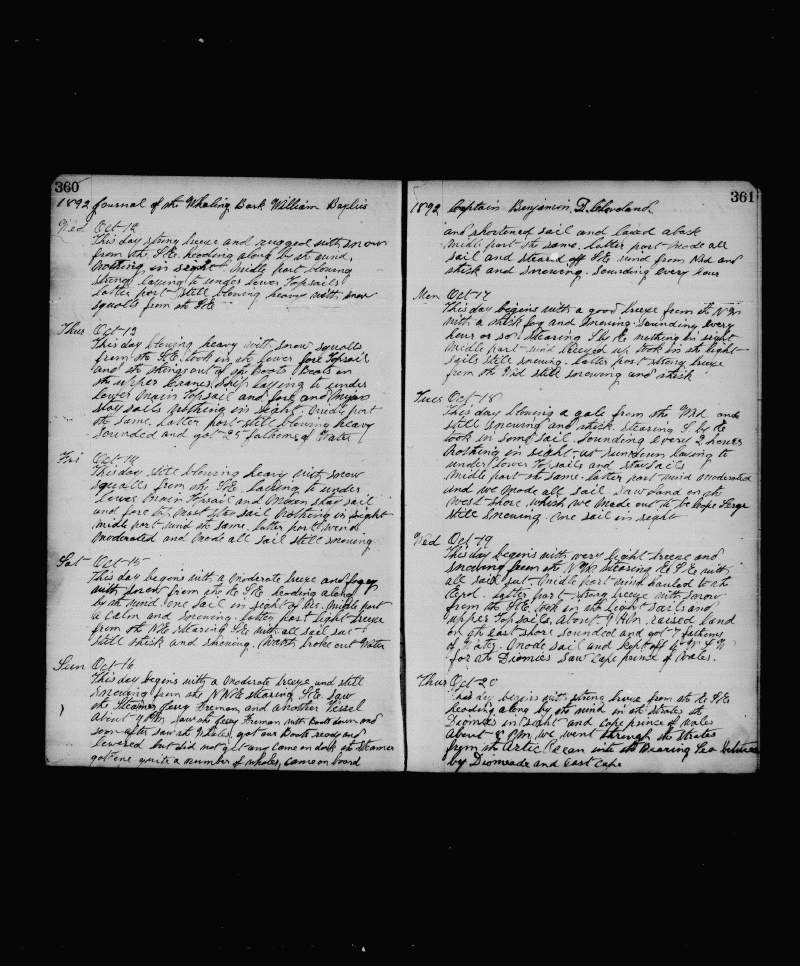 360
1892 Journal of the Whaling Bark William Baylies
Wed Oct 12
This day strong breeze and rugged with snow
from the SE. heading along by the wind,
Nothing in sight. Middle part blowing
strong laying to under lower Topsails
Latter part still blowing heavy with snow
squalls from the SE
Thur Oct 13
This day blowing heavy with snow squalls
from the SE. took in the lower fore Topsail
and the things out of the boats. Boats on
the upper cranes. Ship laying to under
lower Main Topsail and fore and Mizen
stay sails Nothing in sight. Middle part
the same. Latter part still blowing heavy
Sounded and got 25 fathoms of Water
Fri Oct 14
This day still blowing heavy with snow
squalls from the SE. Laying to under
lower Main Topsail and Mizen stay sail
and fore top Mast stay sail Nothing in sight
Middle part wind the same. Latter part wind
Moderated and Made all sail still snowing
Sat Oct 15
This day begins with a Moderate breeze and foggy
with snow from the SE heading along
by the wind. one sail in sight of Us. Middle part
a calm and snowing. Latter part light breeze
from the NE stearing SE with all sail set
still thick and snowing. Watch broke out Water
Sun Oct 16
This day begins with a Moderate breeze and still
snowing from the NNE stearing SE. Saw
the Steamer Jessy Freman and another Vessel
About 9 AM. saw the Jesey Freman with boats down and
soon after saw the whales, got our Boats ready and
lowered but did not get any came on dark the Steamer
got one quite a number of whales, came on board
361
1892 Captain Benjamin D. Cleveland.
and shortened sail and laved aback
Middle part the same. Latter part Made all
sail and steard off SE wind from Nrd and
thick and snowing. Sounding every hour
Mon Oct 17
This day begins with a good breeze from the NW
with a thick fog and snowing. Sounding every
hour or so. stearing S by E nothing in sight
Middle part wind breezed up took in the light
sails still snowing. Latter part strong breeze
from the Nrd still snowing and thick
Tues Oct 18
This day blowing a gale from the Nrd and
still snowing and thick stearing S by E
took in some sail. Sounding every 2 hours
Nothing in sight at sundown laving to
under lower Topsails and staysails
Middle part the same. Latter part wind Moderated
and we Made all sail. Saw land on the
west shore which we Made out to be Cape Serge
still snowing. one sail in sight
Wed Oct 19
This day begins with very light breeze and
snowing from the NW stearing ESE with
all sail set. Middle part wind hauled to the
Eard. Latter part strong breeze with snow
from the SE. took in the light sails and
upper Topsails. About 9 AM. raised land
on the East shore sounded and got 7 fathoms
of Water. Made sail and kept off
for the Diomies Saw Cape prince of Wales.
Thur Oct 20
This day begins with strong breeze from the ESE
heading along by the wind in the Strates the
Diomies in sight and Cape prince of Wales
About 8 PM, we went through the Strates
from the Artic Ocean into the Bearing Sea between
by Diomeade and East Cape